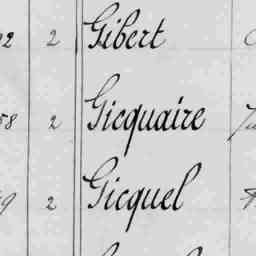 2 2 Gibert
58 2 Gicquaire
9 2 Gicquel